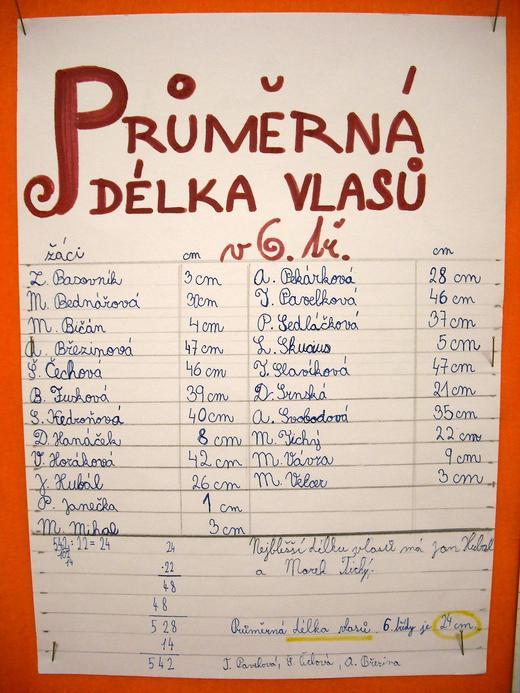 PRŮMĚRNÁ
DÉLKA VLASŮ
v 6. tř.
žáci cm cm
Z. Basovník 3 cm A. Pekárková 28 cm
M. Bednářová 30cm J. Pavelková 46 cm
M. Bičán 4 cm P. Sedláčková 37 cm
A. Březinová 47 cm L. 5 cm
Š. Čechová 46 cm T. Slavíková 47 cm
B. Fusková 39 cm D. Srnská 21 cm
S. Kedroňová 40 cm A. Svobodová 35 cm
D. Hanáček 8 cm M. Tichý 22 cm
V. Horáková 42 cm M. Vávra 9 cm
J. Hubál 26 cm M. 3 cm
P. Janečka 1 cm
M. Mihal 3 cm
542 : 22 = 24
102
14
24
-22
48
48
528
14
542
Nejbližší délku vlasů má Jan Hubál
a Marek Tichý.
Průměrná délka vlasů 6. třídy je 24 cm.
J. Pavelková, Š. Čechová, A. Březina